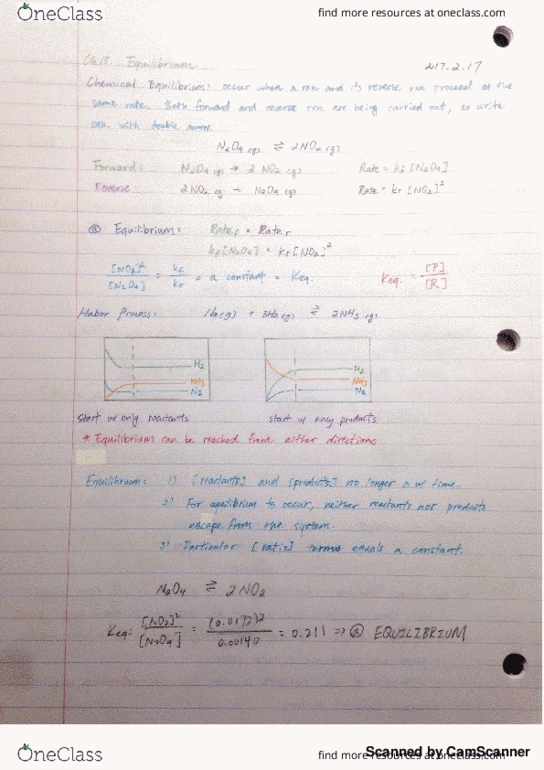 OneClass
find more resources at oneclass.com
Equilibrium
2017.2.17
Chemical Equilibrium: occur when a rxn and its reverse rxn proceed at the
same rate. Both forward and reverse rxn are being carried out, so write
with double arrow.
N₂O₄ (g) ⇌ 2NO₂ (g)
Forward: N₂O₄ (g) → 2 NO₂ (g) Rate = kf [N₂O₄]
Reverse 2NO₂ (g) → N₂O₄ (g) Rate = kr [NO₂]²
@ Equilibrium: Ratef = Rater
kf [N₂O₄] = kr [NO₂]²
[NO₂]² / [N₂O₄] = kf / kr = a constant = Keq. Keq. = [P] / [R]
Habor Process: N₂(g) + 3H₂(g) ⇌ 2NH₃ (g)
H₂
NH₃
N₂
H₂
NH₃
N₂
start w/ only reactants
start w/ only products
* Equilibrium can be reached from either directions
Equilibrium: 1) [reactants] and [products] no longer Δ w/ time.
2) For equilibrium to occur, neither reactants nor products
escape from the system.
3) Particular [ratio] terms equals a constant.
N₂O₄ ⇌ 2NO₂
Keq: [NO₂]² / [N₂O₄] = (0.0172)² / 0.00140 = 0.211 => @ EQUILIBRIUM
OneClass
find more resources at oneclass.com
Scanned by CamScanner